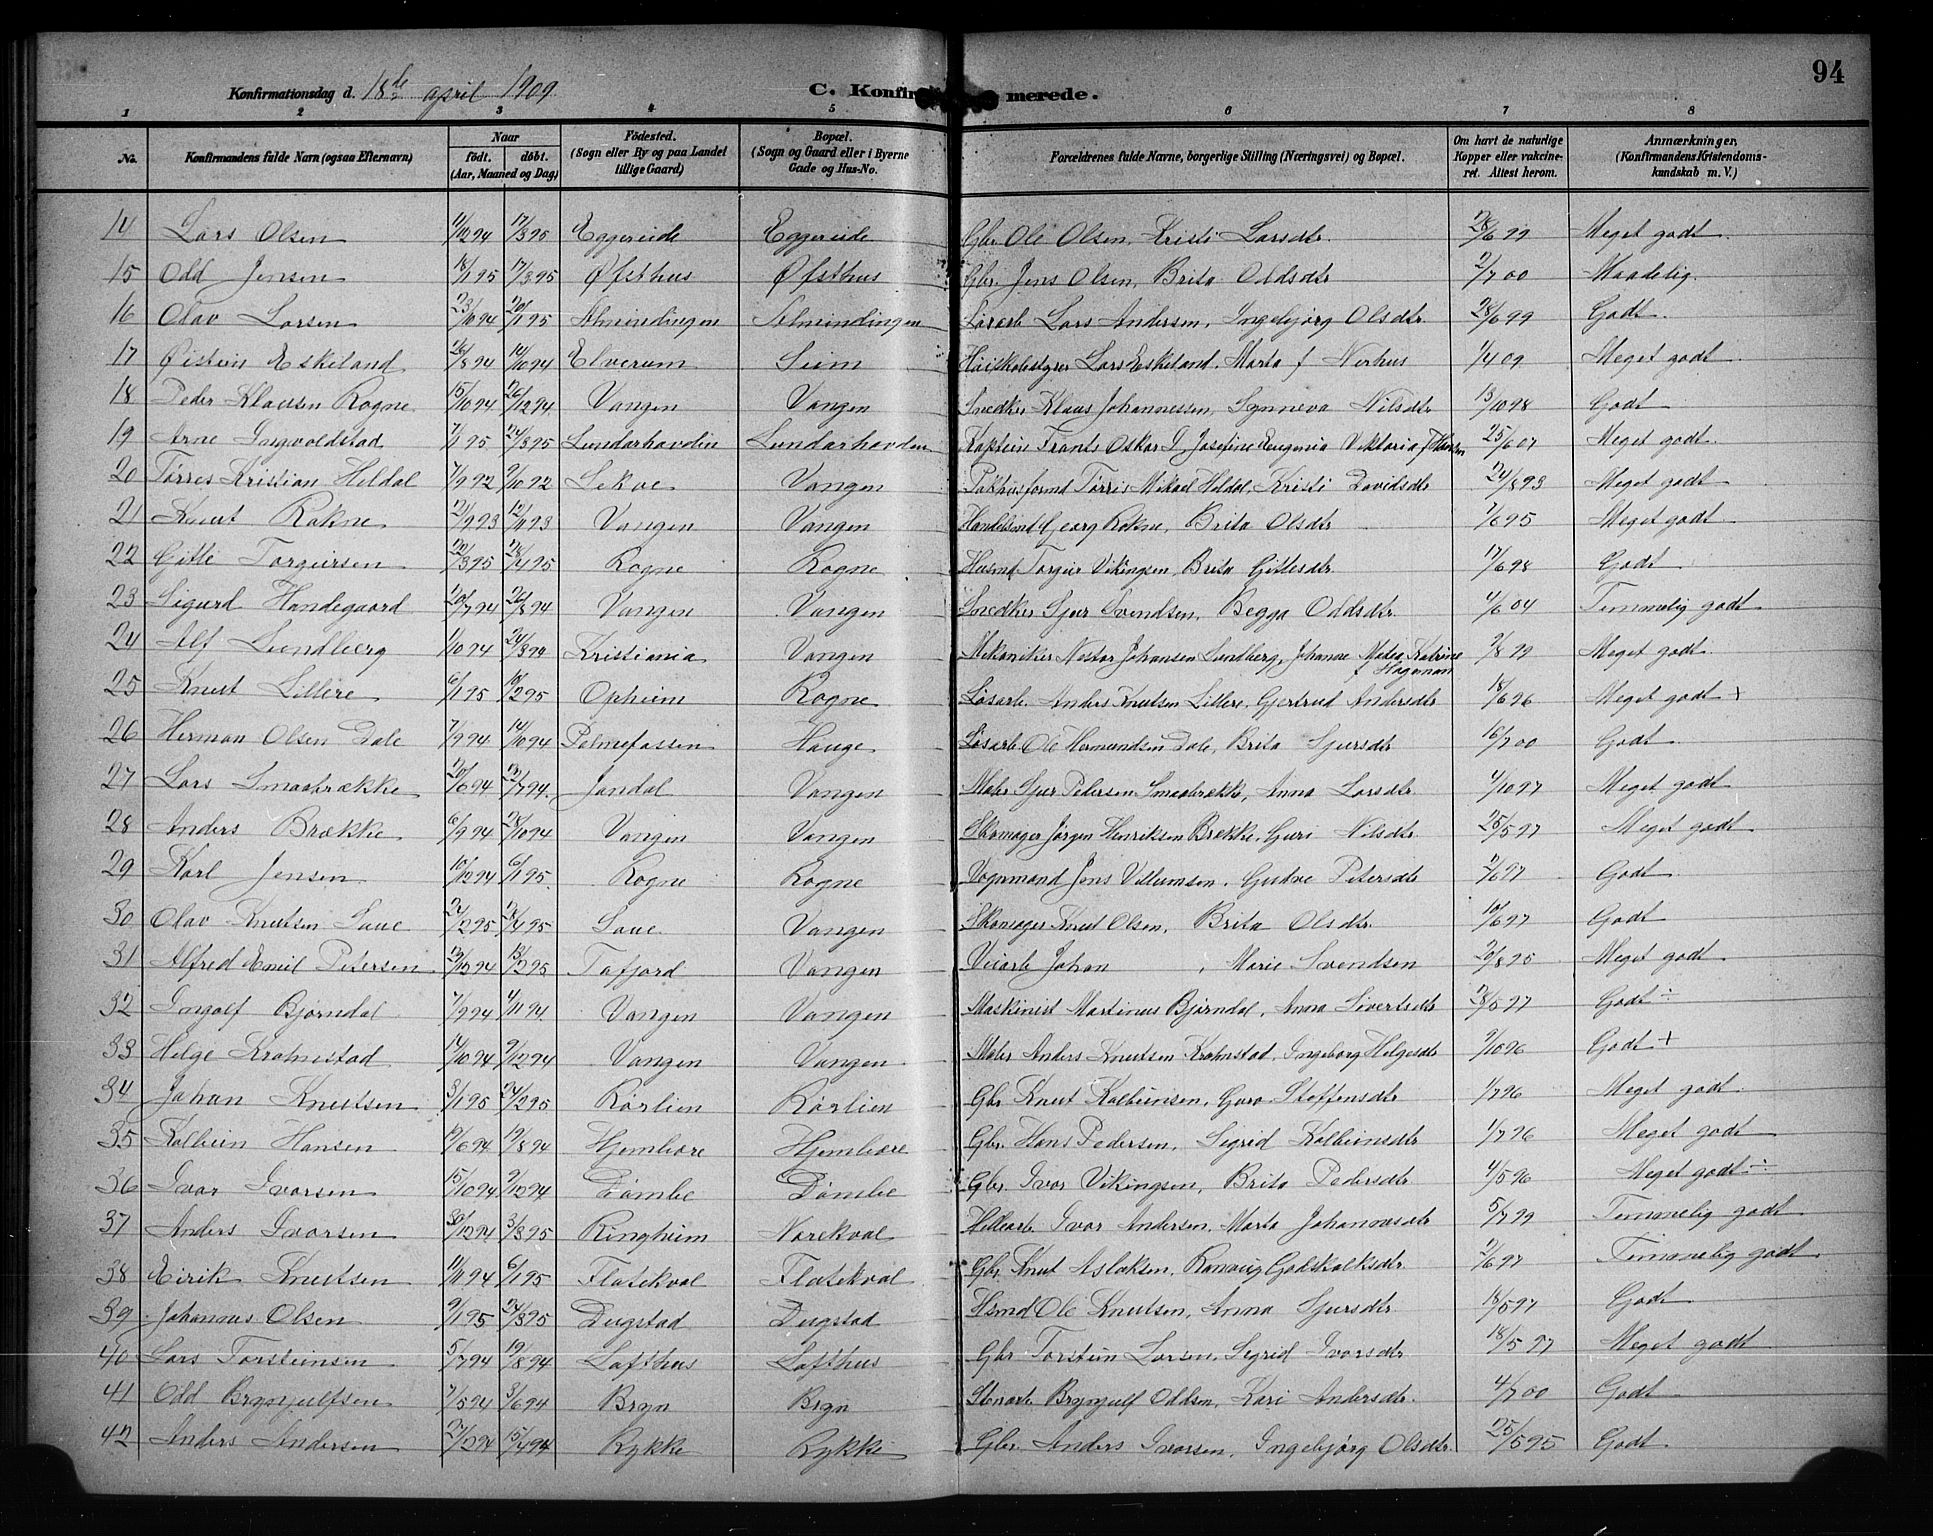 94
Konfirmationsdag d. 18de april 1909. C. Konfirmerede.
1 2 3 4 5 6 7 8
No. Konfirmandens fulde Navn (ogsaa Efternavn) Naar født. døbt. (Aar, Maaned og Dag) Fødested. (Sogn eller By og paa Landet tillige Gaard) Bopæl. (Sogn og Gaard eller i Byerne Gade og Hus-No. Forældrenes fulde Navne, borgerlige Stilling (Næringsvei) og Bopæl. Om havt de naturlige Kopper eller vakcineret. Attest herom. Anmærkninger, (Konfirmandens Kristendomskundskab m. V.)
14 Lars Olsen 11/12 94 17/3 95 Eggereide Eggereide Gbr. Ole Olsen, Kristi Larsdtr. 28/6 99 Meget godt
15 Odd Jensen 18/1 95 17/3 95 Øfsthus Øfsthus Gbr. Jens Olsen, Brita Oddsdtr 2/7 00 Maadelig
16 Olav Larsen 23/10 94 20/1 95 Almindingen Almindingen Løsarb Lars Andersen, Ingebjørg Olsdtr 28/6 99 Godt.
17 Øistein Eskeland 26/8 94 14/10 94 Elverum Seim Høiskolestyrer Lars Eskeland, Marta f Nerhus 1/4 09 Meget godt
18 Peder Klausen Rogne 15/10 94 26/12 94 Vangen Vangen Snedker Klaus Johannessen, Synneva Nilsdtr 13/10 98 Godt
19 Arne Ingvoldstad 7/1 95 24/3 95 Lundarhovden Lundarhovden Kaptein Frants Oskar I, Josefine Eugenia Viktoria f Hansen 25/6 07 Meget godt
20 Tørres Kristian Heldal 7/9 92 9/10 92 Lekve Vangen Pakhusformd Tørris Mikael Heldal, Kristi Davidsdtr 24/8 93 Meget godt
21 Knut Rokne 21/9 93 12/11 93 Vangen Vangen Handelsmd Georg Rokne, Brita Olsdtr 7/6 95 Meget godt
22 Gitle Torgeirsen 20/3 95 28/4 95 Rogne Rogne Husmd Torgeir Vikingsen, Brita Gitlesdtr 17/6 98 Godt
23 Sigurd Handegaard 20/7 94 26/8 94 Vangen Vangen Snedker Sjur Svendsen, Begga Oddsdtr. 4/6 04 Temmelig godt
24 Alf Lundberg 1/10 94 24/3 94 Kristiania Vangen Mekaniker Nestor Johansen Lundberg, Johanne Matea Katrine f Hageman 2/8 99 Meget godt
25 Knut Lillere 6/1 95 10/2 95 Opheim Rogne Løsarb. Anders Knutsen Lillere, Gjertrud Andersdtr 18/6 96 Meget godt +
26 Herman Olsen Dale 7/9 94 14/10 94 Palmefossen Hauge Løsarb Ole Hermundsen Dale, Brita Sjursdtr 16/7 00 Godt
27 Lars Smaabrække 20/6 94 29/7 94. Jondal Vangen Maler Sjur Pedersen Smaabrække, Anna Larsdtr 4/10 97 Meget godt
28 Anders Brække 6/9 94 28/10 94 Vangen Vangen Skomager Jørgen Henriksen Brække, Guri Nilsdtr 25/5 97 Meget godt
29 Karl Jensen 10/12 94 6/1 95. Rogne Rogne Vognmand Jens Villumsen, Gudve Petersdtr 2/6 97 Godt
30 Olav Knutsen Saue 2/2 95 28/4 95 Saue Vangen Skomager Knut Olsen, Brita Olsdtr 10/6 97 Godt
31 Alfred Emil Petersen 29/12 94 13/2 95 Tafjord Vangen Veiarb Johan , Marie Svendsen 20/8 95 Meget godt
32 Ingolf Bjørndal 7/9 94 4/11 94. Vangen Vangen Maskinist Martinus Bjørndal, Anna Sivertsdtr 28/5 97 Godt ÷
33 Helge Krahnstad 14/10 94 9/12 94 Vangen Vangen Maler Anders Knutsen Krahnstad, Ingeborg Helgesdtr 9/10 96 Godt +
34 Johan Knutsen 3/1 95 24/2 95 Rørlien Rørlien Gbr. Knut Kolbeinsen, Guro Steffensdtr 1/7 96 Meget godt
35 Kolbein Hansen 12/6 94 19/8 94 Hjembore Hjembore Gbr. Hans Pedersen, Sigrid Kolbeinsdtr 1/7 96 Meget godt
36 Ivar Ivarsen 15/10 94 9/12 94 Dømbe Dømbe Gbr. Ivar Vikingsen, Brita Pedersdtr 4/5 96 Meget godt ÷
37 Anders Ivarsen 30/12 94 3/3 95 Ringheim Norekval Hellearb Ivar Andersen, Marta Johannesdtr 5/7 99 Temmelig godt
38 Eirik Knutsen 11/11 94 6/1 95 Flatekval Flatekval Gbr Knut Aslaksen, Ranveig Gotskalksdtr 2/6 97 Temmelig godt
39 Johannes Olsen 9/1 95 24/3 95 Dugstad Dugstad Hsmd Ole Knutsen, Anna Sjursdtr 18/5 97 Godt
40 Lars Torsteinsen 5/7 94 19/8 94 Lofthus Lofthus Gbr Torstein Larsen, Sigrid Ivarsdtr 18/5 97 Meget godt
41 Odd Brynjulfsen 7/5 94 3/6 94 Bryn Bryn Stenarb Brynjulf Oddsen, Kari Andersdtr. 4/7 00 Godt
42 Anders Andersen 27/2 94 15/4 94 Rykke Rykke Gbr. Anders Ivarsen, Ingebjørg Olsdtr 25/5 95 Godt